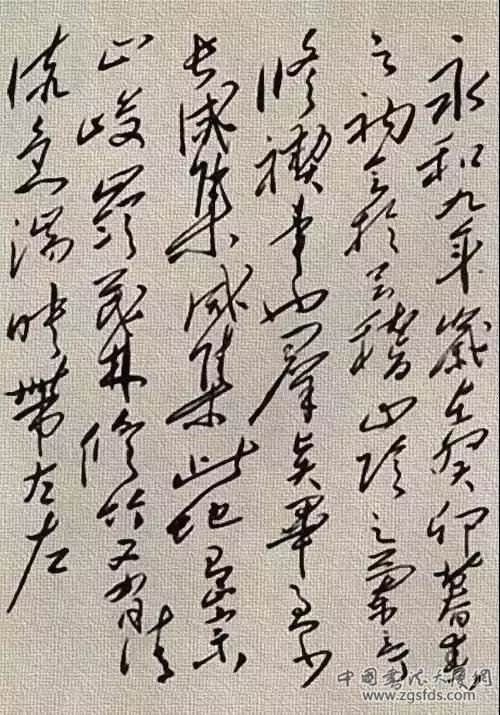 永和九年歲在癸卯暮春
之初會於會稽山陰之蘭亭
修禊事也羣賢畢至少
長咸集咸集此地有崇
山峻嶺茂林修竹又有清
流急湍映帶左左
中国书法大厦网
www.zgsfds.com